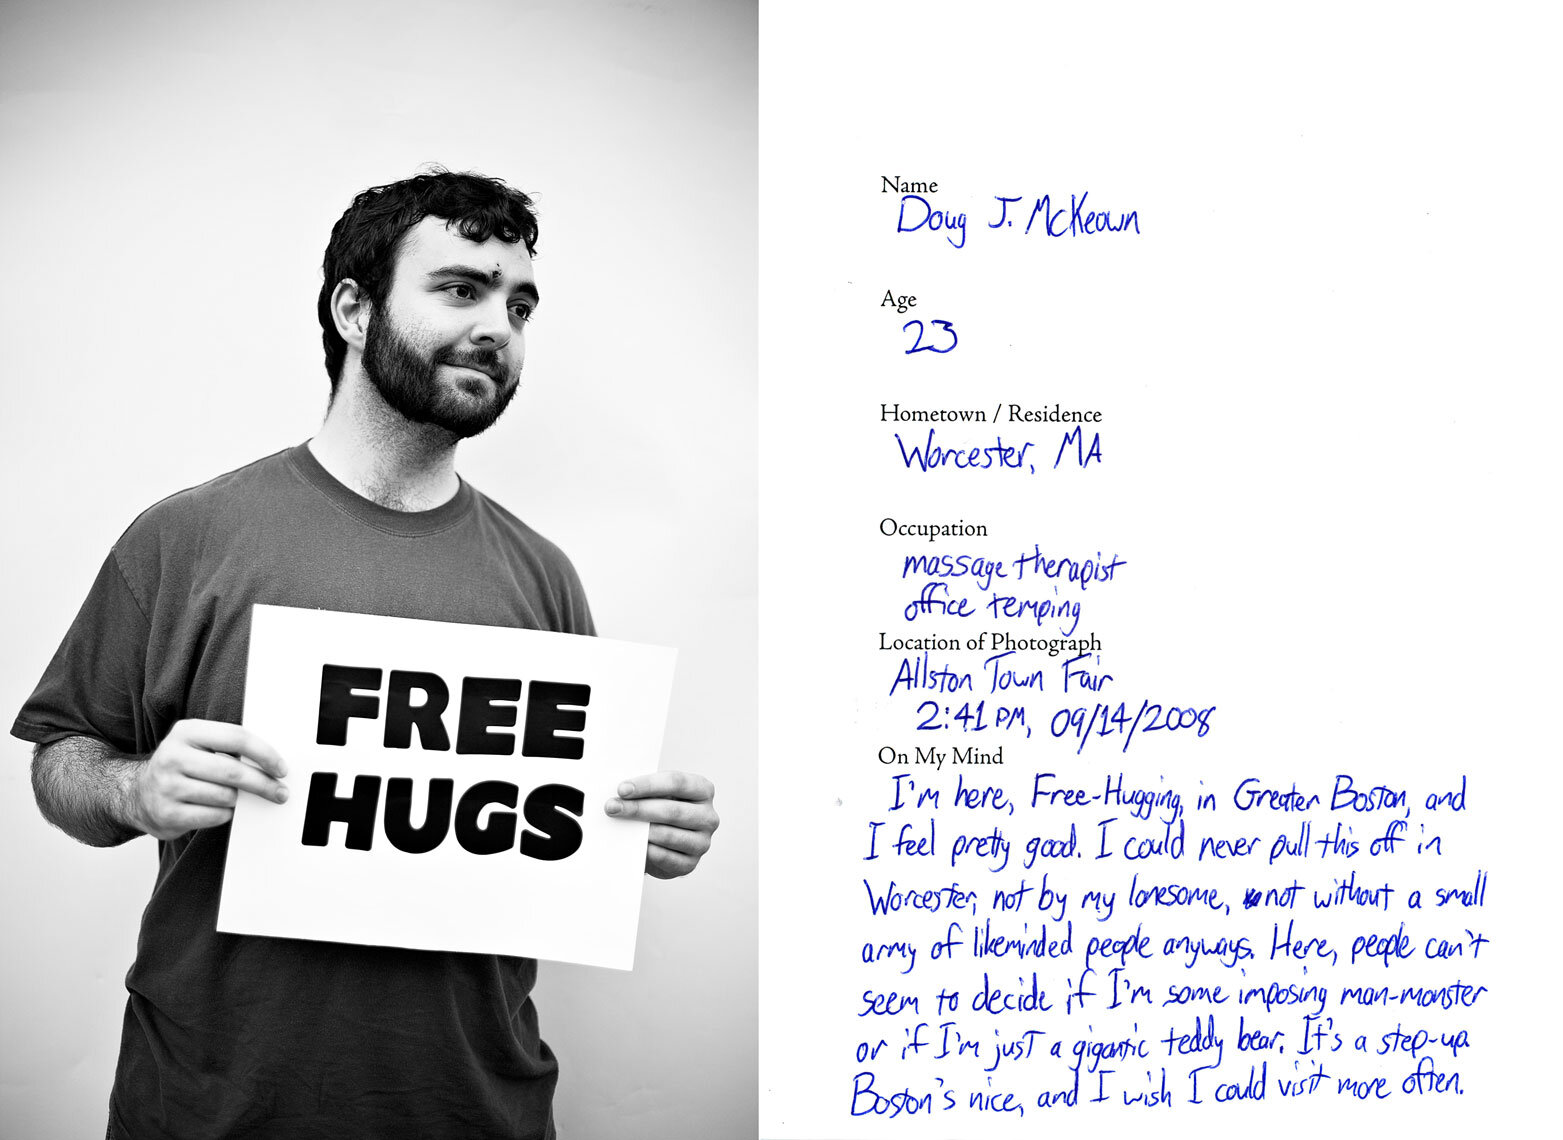 FREE
HUGS
Name
Doug J. McKeown
Age
23
Hometown / Residence
Worcester, MA
Occupation
massage therapist
office temping
Location of Photograph
Allston Town Fair
2:41 PM, 09/14/2008
On My Mind
I'm here, Free-Hugging, in Greater Boston, and
I feel pretty good. I could never pull this off in
Worcester, not by my lonesome, not without a small
army of likeminded people anyways. Here, people can't
seem to decide if I'm some imposing man-monster
or if I'm just a gigantic teddy bear. It's a step-up.
Boston's nice, and I wish I could visit more often.